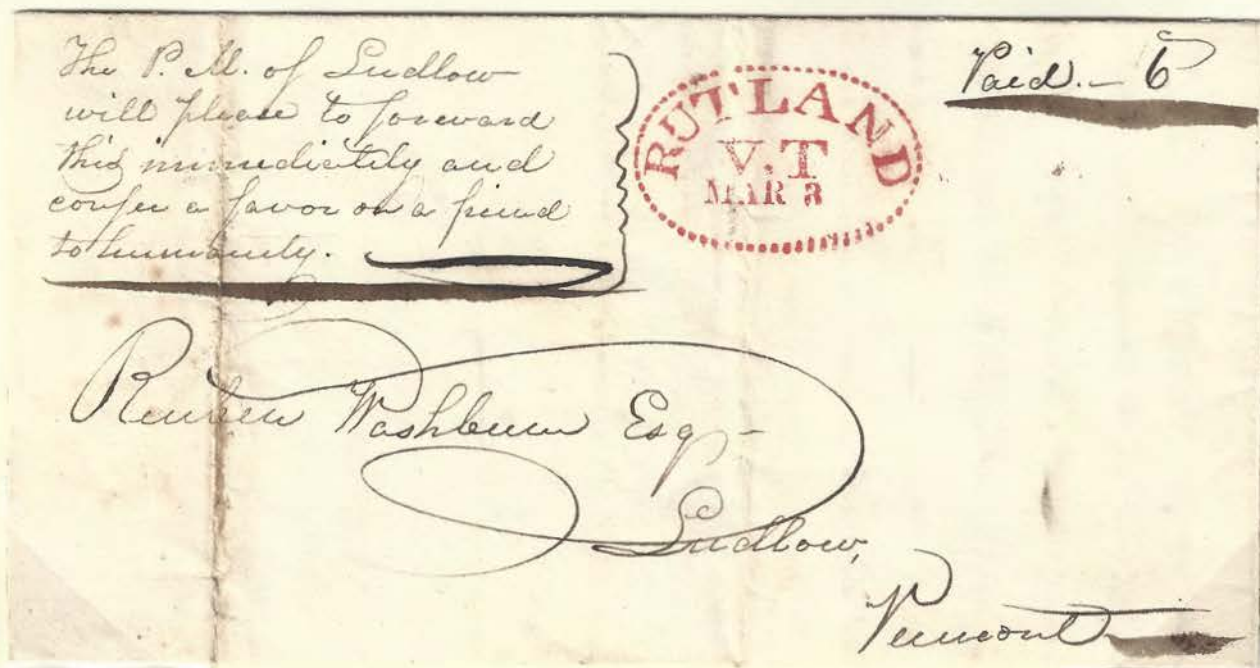 The P. M. of Ludlow
will please to forward
this immediately and
confer a favor on a friend
to humanity.
RUTLAND
V.T
MAR 3
Paid. – 6
Reuben Washburn Esq –
Ludlow,
Vermont